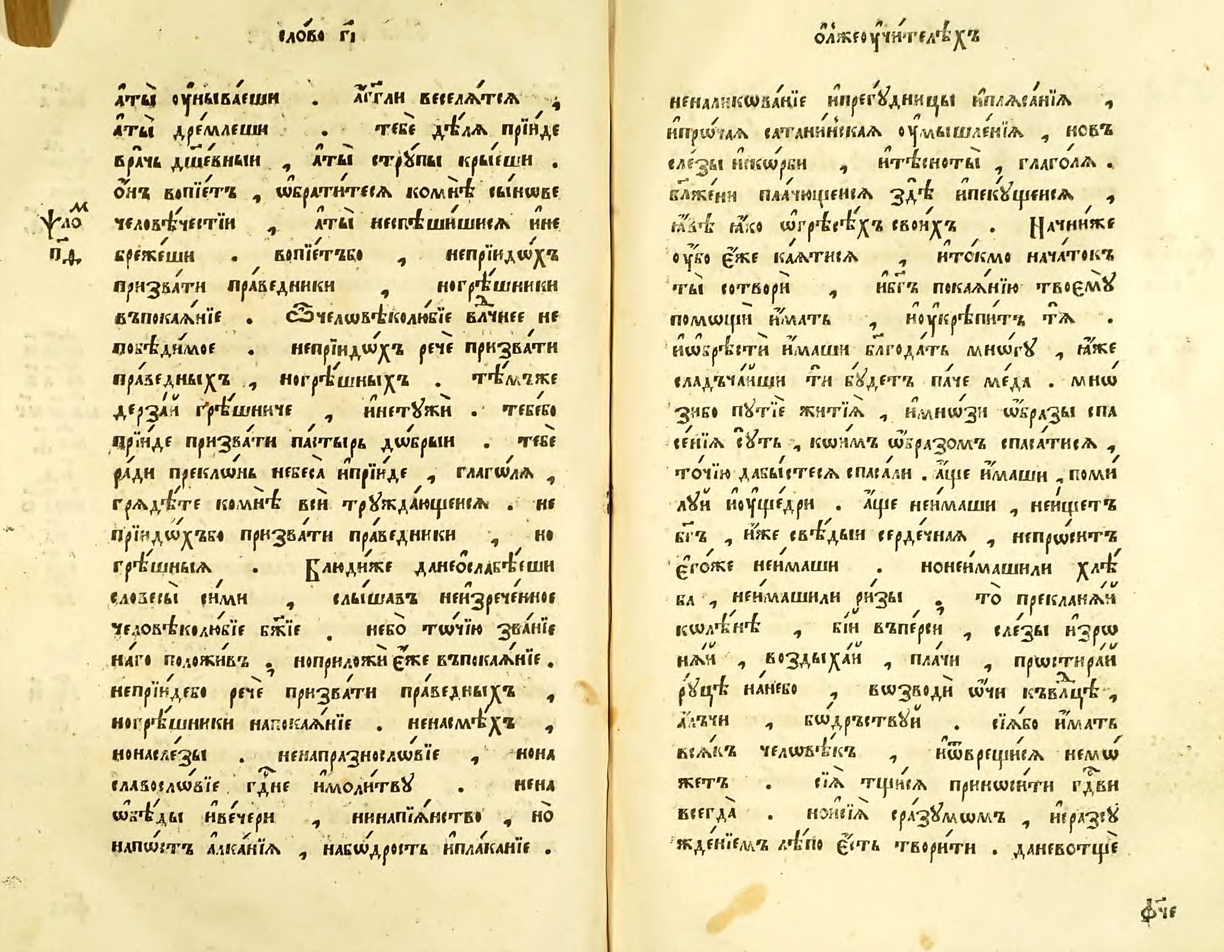 сло́во г҃і
а҆ты̀ ᲂу҆ныва́еши . а҆́гг҃ли веселѧ́тсѧ ,
а҆ты̀ дре́млеши . тебѐ дѣ́лѧ прїи́де
вра́чь дш҃е́вныи , а҆ты̀ стрꙋ́пы кры́еши .
ѻ҆́нъ вопїе́тъ , ѡ҆брати́тесѧ комнѣ̀ сы́нове
человѣ́честїи , а҆ты̀ неспѣши́шисѧ и҆не
ѱало м
п҃д
бреже́ши . вопїе́тъбо , непрїидо́хъ
призва́ти пра́ведники , ногрѣ́шники
въпокаѧ́нїе . Ѿчелѡвѣколю́бїе влⷣчнее не
побѣди́мое . непрїидѡ́хъ речѐ призва́ти
пра́ведныхъ , ногрѣ́шныхъ . тѣ́мъже
дерза́й грѣ́шниче , и҆нетꙋжѝ . тебе́бо
прїи́де призва́ти па́стырь дѡ́брыи . тебѐ
ра́ди преклѡ́нь небеса̀ и҆прїи́де , глаго́лѧ ,
грѧдѣ́те комнѣ̀ всѝ трꙋжда́ющеисѧ . не
прїидѡ́хъбо призва́ти пра́ведники , но
грѣ́шныѧ . Блюди́же данеѻ҆слабѣ́еши
словесы̀ си́ми , слы́шавъ неизрече́нное
человѣколю́бїе бж҃їе , небо̀ то́чїю зва́нїе
на́го положи́въ , ноприложѝ є҆́же въпокаѧ́нїе .
непрїи́дебо речѐ призва́ти пра́ведныхъ ,
ногрѣ́шники напокаѧ́нїе . ненасмѣ́хъ ,
нонасле́зы . ненапразносло́вїе , нона
славосло́вїе гдⷭ҇не и҆моли́твꙋ . нена
ѡ҆бѣ́ды и҆вече́ри , нинапїѧ́нство , но̀
напо́стъ а҆лка́нїѧ , набѡ́дрость и҆пла́канїе .
ѻ҆лжеᲂу҆чи́телѣхъ
неналикова́нїе и҆прегꙋ́дницы и҆плѧса́нїѧ ,
и҆про́чаѧ сатани́нскаѧ ᲂу҆мышле́нїѧ , новъ
сле́зы и҆ско́рби , и҆тѣсноты̀ , глаго́лѧ .
бл҃же́ни пла́чющеисѧ здѣ̀ и҆пекꙋ́щеисѧ ,
ꙗ҆́вѣ ꙗ҆́ко ѡ҆грѣсѣ́хъ свои́хъ . Начни́же
ᲂу҆́бо є҆́же ка́ѧтисѧ , и҆то́кмо нача́токъ
ты̀ сотворѝ , и҆бг҃ъ покаѧ́нїю твоємꙋ̀
помощѝ и҆́мать , и҆ᲂу҆крѣпи́тъ тѧ̀ .
и҆ѡ҆брѣстѝ и҆́маши бл҃года́ть мно́гꙋ , ꙗ҆́же
сладъча́йши тѝ бꙋ́детъ па́че ме́да . мно́
зибо пꙋтїѐ житїѧ̀ , и҆мнѡ́зи ѡ҆́бразы спа
се́нїѧ сꙋ́ть , кѡ́имъ ѡ҆́бразомъ спаса́тисѧ ,
то́чїю дабы́стесѧ спаса́ли . а҆́ще и҆́маши , поми
лꙋ́й и҆ᲂу҆ще́дри . а҆́ще неи́маши , неи́щетъ
бг҃ъ , и҆́же свѣ́дыи серде́чнаѧ , непро́ситъ
є҆го́же неи́маши . нонеи́машили хлѣ́
ба , неи́машили ри́зы , то̀ прекланѧ́й
колѣ́нѣ , бі́й въпе́рси , сле́зы и҆зро
нѧ́й , воздыха́й , пла́чи , простира́й
рꙋ́цѣ нане́бо , возводѝ ѻ҆́чи къвлⷣцѣ ,
а҆́лъчи , бѡ́дръствꙋй . сїѧ́бо и҆́мать
всѧ́къ человѣ́къ , и҆ѿврещи́сѧ немо́
жетъ . сїѧ̀ тщи́сѧ приноси́ти гдⷭ҇ви
всегда̀ . нои҆сїѧ̀ сра́зꙋмомъ , и҆сразсꙋ
жде́нїемъ лѣ́по є҆́сть твори́ти . даневотщѐ
ѻ҆́че